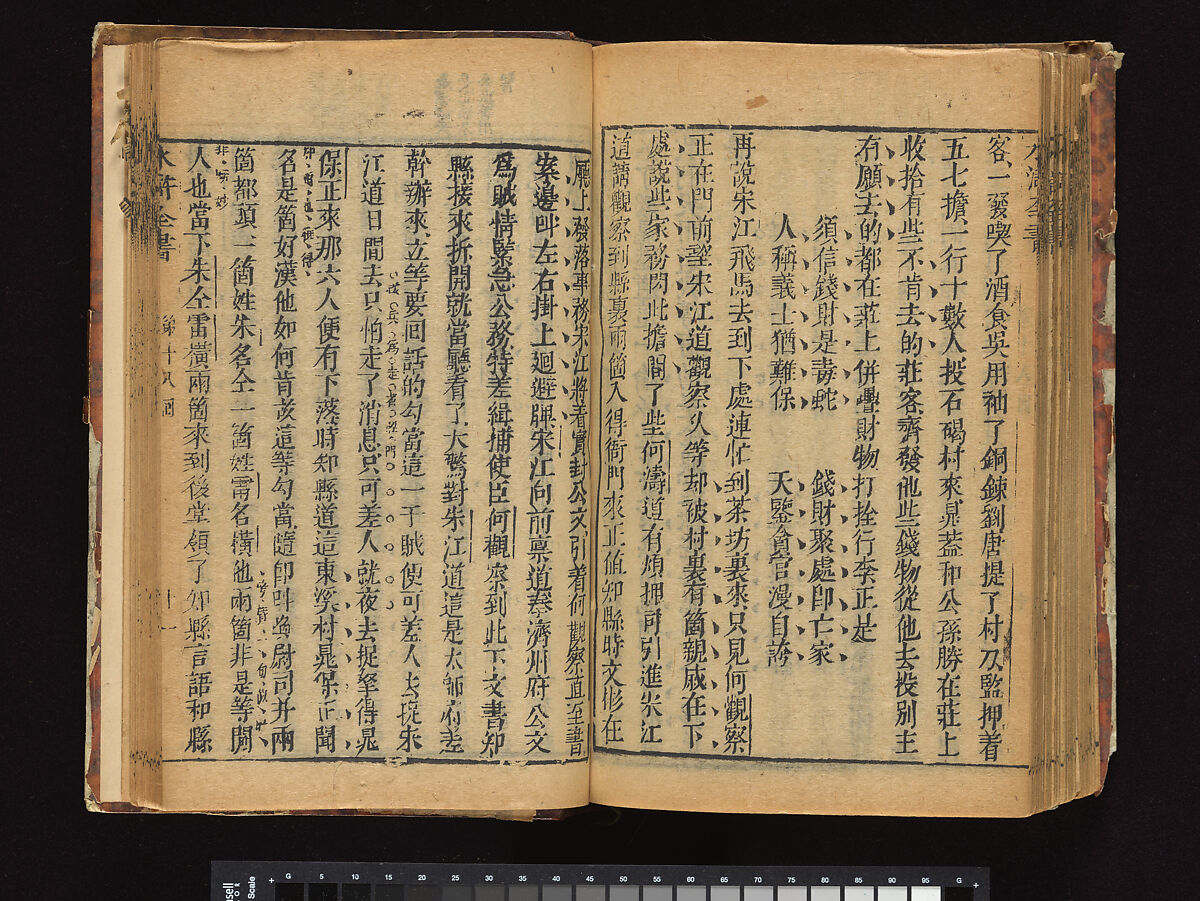 客一發喫了酒食吳用袖了銅鍊劉唐提了朴刀監押着
五七擔一行十數人投石碣村來晁蓋和公孫勝在莊上
收拾有些不肯去的莊客齎發他些錢物從他去投別主
有願去的都在莊上併疊財物打拴行李正是
須信錢財是毒蛇 錢財聚處即亡家
人稱義士猶難保 天鑒貪官漫自誇
再說宋江飛馬去到下處連忙到茶坊裏來只見何觀察
正在門前望宋江道觀察久等却被村裏有箇親戚在下
處說些家務因此擔閣了些何濤道有煩押司引進宋江
道請觀察到縣裏兩箇入得衙門來正值知縣時文彬在
廳上發落事務宋江將着實封公文引着何觀察直至書
案邊叫左右掛上迴避牌宋江向前禀道奉濟州府公文
爲賊情緊急公務特差緝捕使臣何觀察到此下文書知
縣接來拆開就當廳看了大驚對宋江道這是太師府差
幹辦來立等要回話的勾當這一干賊便可差人去捉宋
江道日間去只怕走了消息只可差人就夜去捉拏得晁
保正來那六人便有下落時知縣道這東溪村晁保正聞
名是箇好漢他如何肯做這等勾當隨即叫喚尉司并兩
箇都頭一箇姓朱名仝一箇姓雷名橫他兩箇非是等閒
人也當下朱仝雷橫兩箇來到後堂領了知縣言語和縣
水滸全書 第十八回 十一